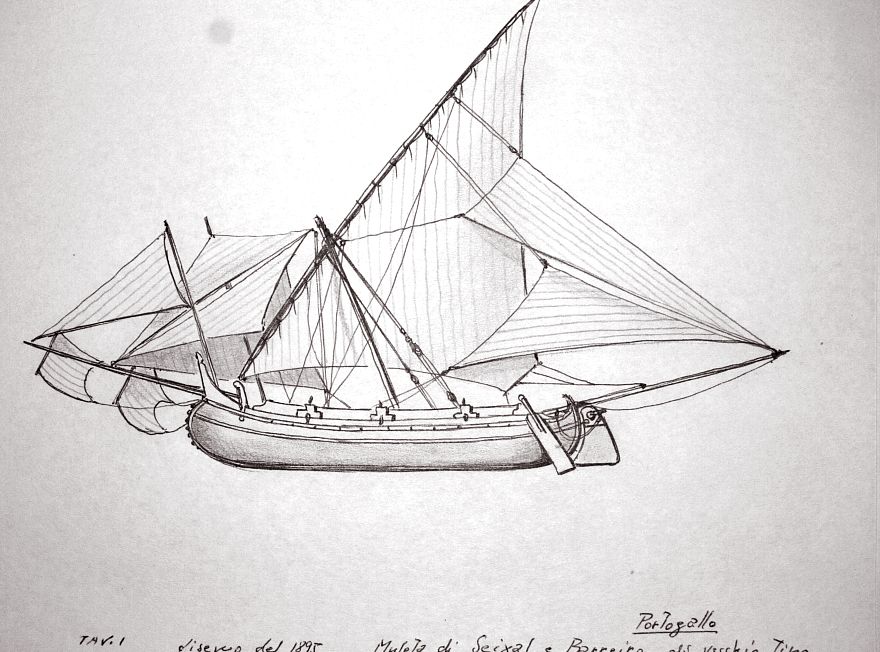 Portogallo
TAV. I disegno del 1895 Muleta di Seixal e Barreiro, più vecchio Tipo